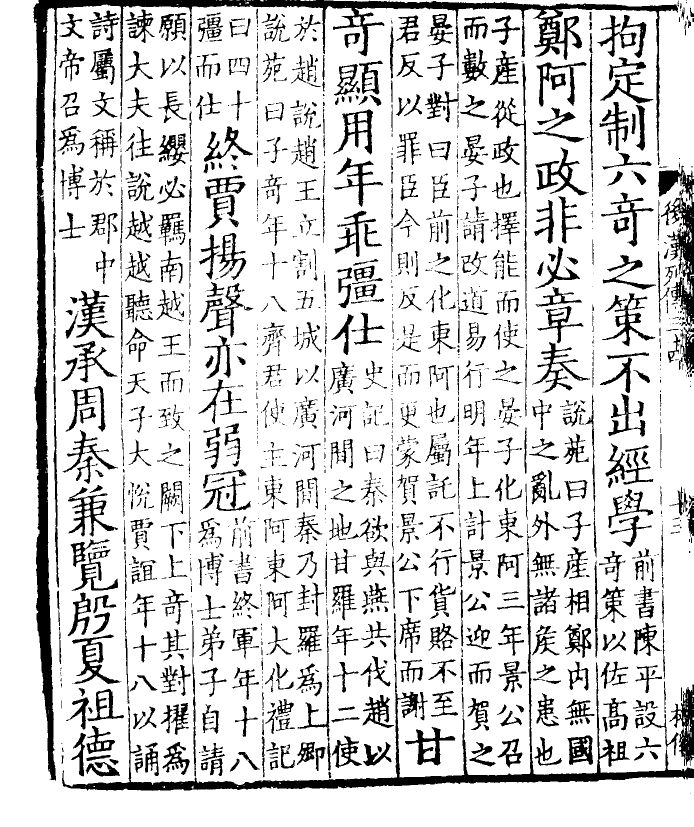 拘定制六奇之策不出經學
前書陳平設六
奇策以佐高祖
鄭阿之政非必章奏
說苑曰子產相鄭内無國
中之亂外無諸侯之患也
子產從政也擇能而使之晏子化東阿三年景公召
而數之晏子請改道易行明年上計景公迎而賀之
晏子對曰臣前之化東阿也屬託不行貨賂不至
君反以罪臣今則反是而更蒙賀景公下席而謝
甘
奇顯用年乖彊仕
史記曰秦欲與燕共伐趙以
廣河間之地甘羅年十二使
於趙說趙王立割五城以廣河間秦乃封羅爲上卿
說苑曰子奇年十八齊君使主東阿東阿大化禮記
曰四十
彊而仕
終賈揚聲亦在弱冠
前書終軍年十八
爲博士弟子自請
願以長纓必羈南越王而致之闕下上奇其對擢爲
諫大夫往說越越聽命天子大悅賈誼年十八以誦
詩屬文稱於郡中
文帝召爲博士
漢承周秦兼覽殷夏祖德
後漢列傳
十三